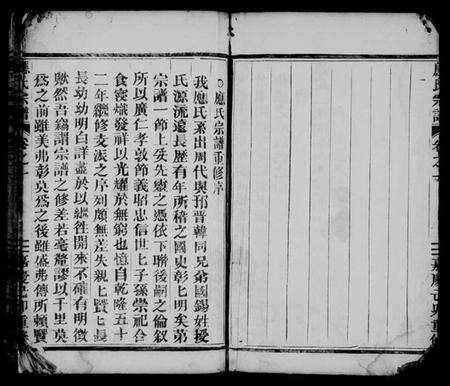 應氏宗譜重修序
我應氏系出周代與邘晉韓同兄弟國錫姓授
氏源流遠長歷有年所稽之國史彰彰明矣第
宗譜一節上妥先靈之憑依下聯後嗣之倫叙
所以廣仁孝敦節義昭忠信世世子孫崇祀合
食寖熾發祥以光耀於無窮也憶自乾隆五十
二年繼修支派之序列顧無差失親上賢上長
長幼幼明白詳盡於以繼徃開來不確有明徵
歟然吾竊謂宗譜之修差若毫釐謬以千里莫
爲之前雖美弗彰莫爲之後雖盛弗傳所賴賢
應氏宗譜
卷之一
嘉慶
應氏宗譜
卷之一
嘉慶